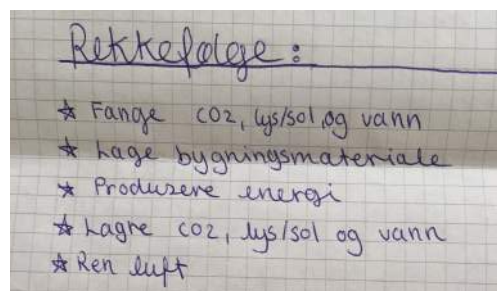 Rekkefølge:
☆ Fange CO2, lys/sol, og vann
☆ Lage bygningsmateriale
☆ Produsere energi
☆ Lagre CO2, lys/sol og vann
☆ Ren luft